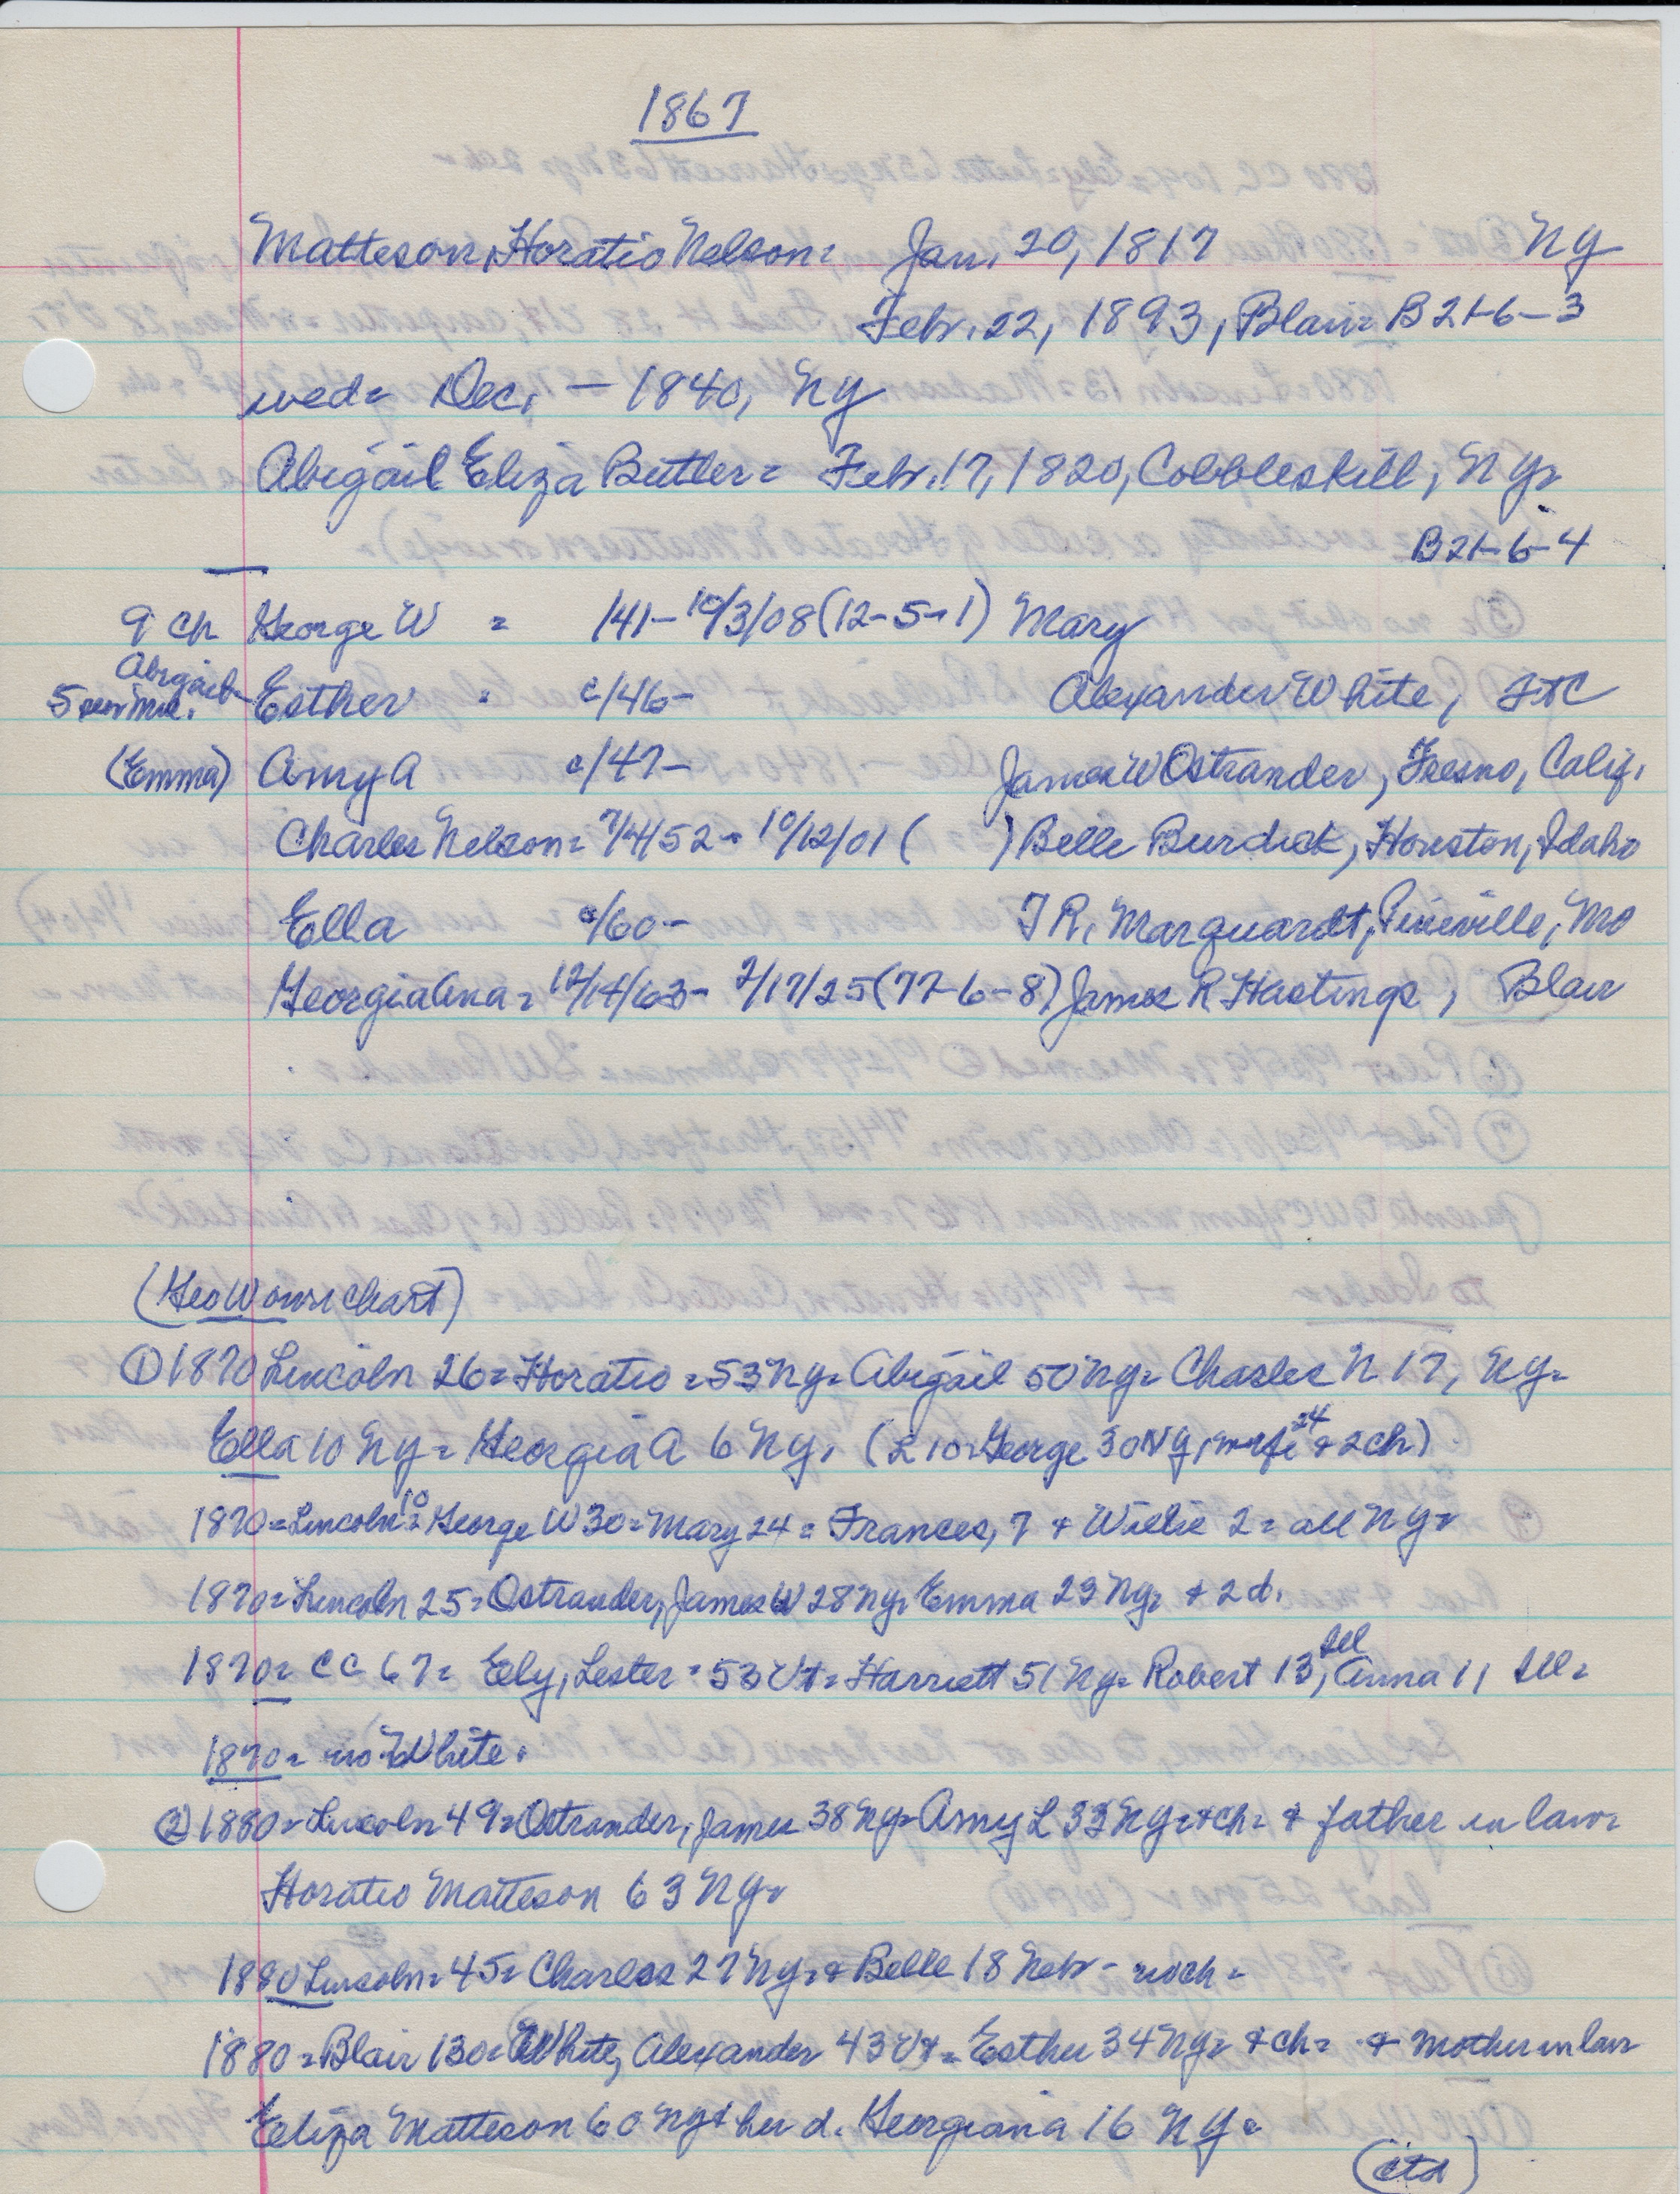 1867
Matteson, Horatio Nelson = Jan. 20, 1817 NY
Febr. 22, 1893, Blair = B 21-6-3
wed = Dec. – 1840, NY
Abigail Eliza Butler = Febr. 17, 1820, Cobbleskill, NY =
B 21-6-4
9 ch George W = 141 – 10/3/08 (12-5-1) Mary
Abigail
5 sev mil. Esther = c/46 – Alexander White, FtC
(Emma) Amy A c/47 – James W Ostrander, Fresno, Calif.
Charles Nelson = 7/4/52 – 10/12/01 ( ) Belle Burdick, Houston, Idaho
Ella c/60 – J R. Marquardt, Pineville, Mo
Georgiaana = 12/14/63 – 2/17/25 (77-6-8) James R Hastings, Blair
(Geo W own chart)
① 1870 Lincoln 26 = Horatio = 53 NY = Abigail 50 NY = Charles N 17, NY =
Ella 10 NY = Georgia A 6 NY. (L 10 = George 30 NY, wife 24 + 2 ch)
1870 = Lincoln 10 = George W 30 = Mary 24 = Frances, 7 + Willie 2 = all NY =
1870 = Lincoln 25 = Ostrander, James W 28 NY = Emma 23 NY = + 2 d.
1870 = CC 67 = Ely, Lester = 53 Vt = Harriett 51 NY = Robert 13, Ill Anna 11 Ill =
1870 = no White.
② 1880 = Lincoln 49 = Ostrander, James 38 NY = Amy L 33 NY = + ch = + father in law =
Horatio Matteson 63 NY =
1880 Lincoln = 45 = Charles 27 NY = + Belle 18 Nebr – no ch =
1880 = Blair 130 = White, Alexander 43 Vt = Esther 34 NY = + ch = + mother in law
Eliza Matteson 60 NY + her d. Georgiana 16 NY =
(ctd)